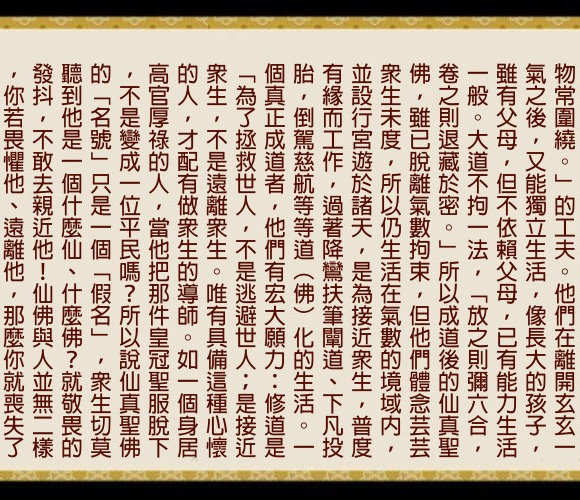 物常圍繞。」的工夫。他們在離開玄玄一
氣之後，又能獨立生活，像長大的孩子，
雖有父母，但不依賴父母，已有能力生活
一般。大道不拘一法，「放之則彌六合，
卷之則退藏於密。」所以成道後的仙真聖
佛，雖已脫離氣數拘束，但他們體念芸芸
衆生未度，所以仍生活在氣數的境域内，
並設行宮遊於諸天，是為接近衆生，普度
有緣而工作，過著降鸞扶筆闡道、下凡投
胎，倒駕慈航等等道（佛）化的生活。一
個真正成道者，他們有宏大願力：修道是
「為了拯救世人，不是逃避世人；是接近
衆生，不是遠離衆生。唯有具備這種心懷
的人，才配有做衆生的導師。如一個身居
高官厚祿的人，當他把那件皇冠聖服脫下
，不是變成一位平民嗎？所以說仙真聖佛
的「名號」只是一個「假名」，衆生切莫
聽到他是一個什麼仙、什麼佛？就敬畏的
發抖，不敢去親近他！仙佛與人並無二樣
，你若畏懼他、遠離他，那麼你就喪失了